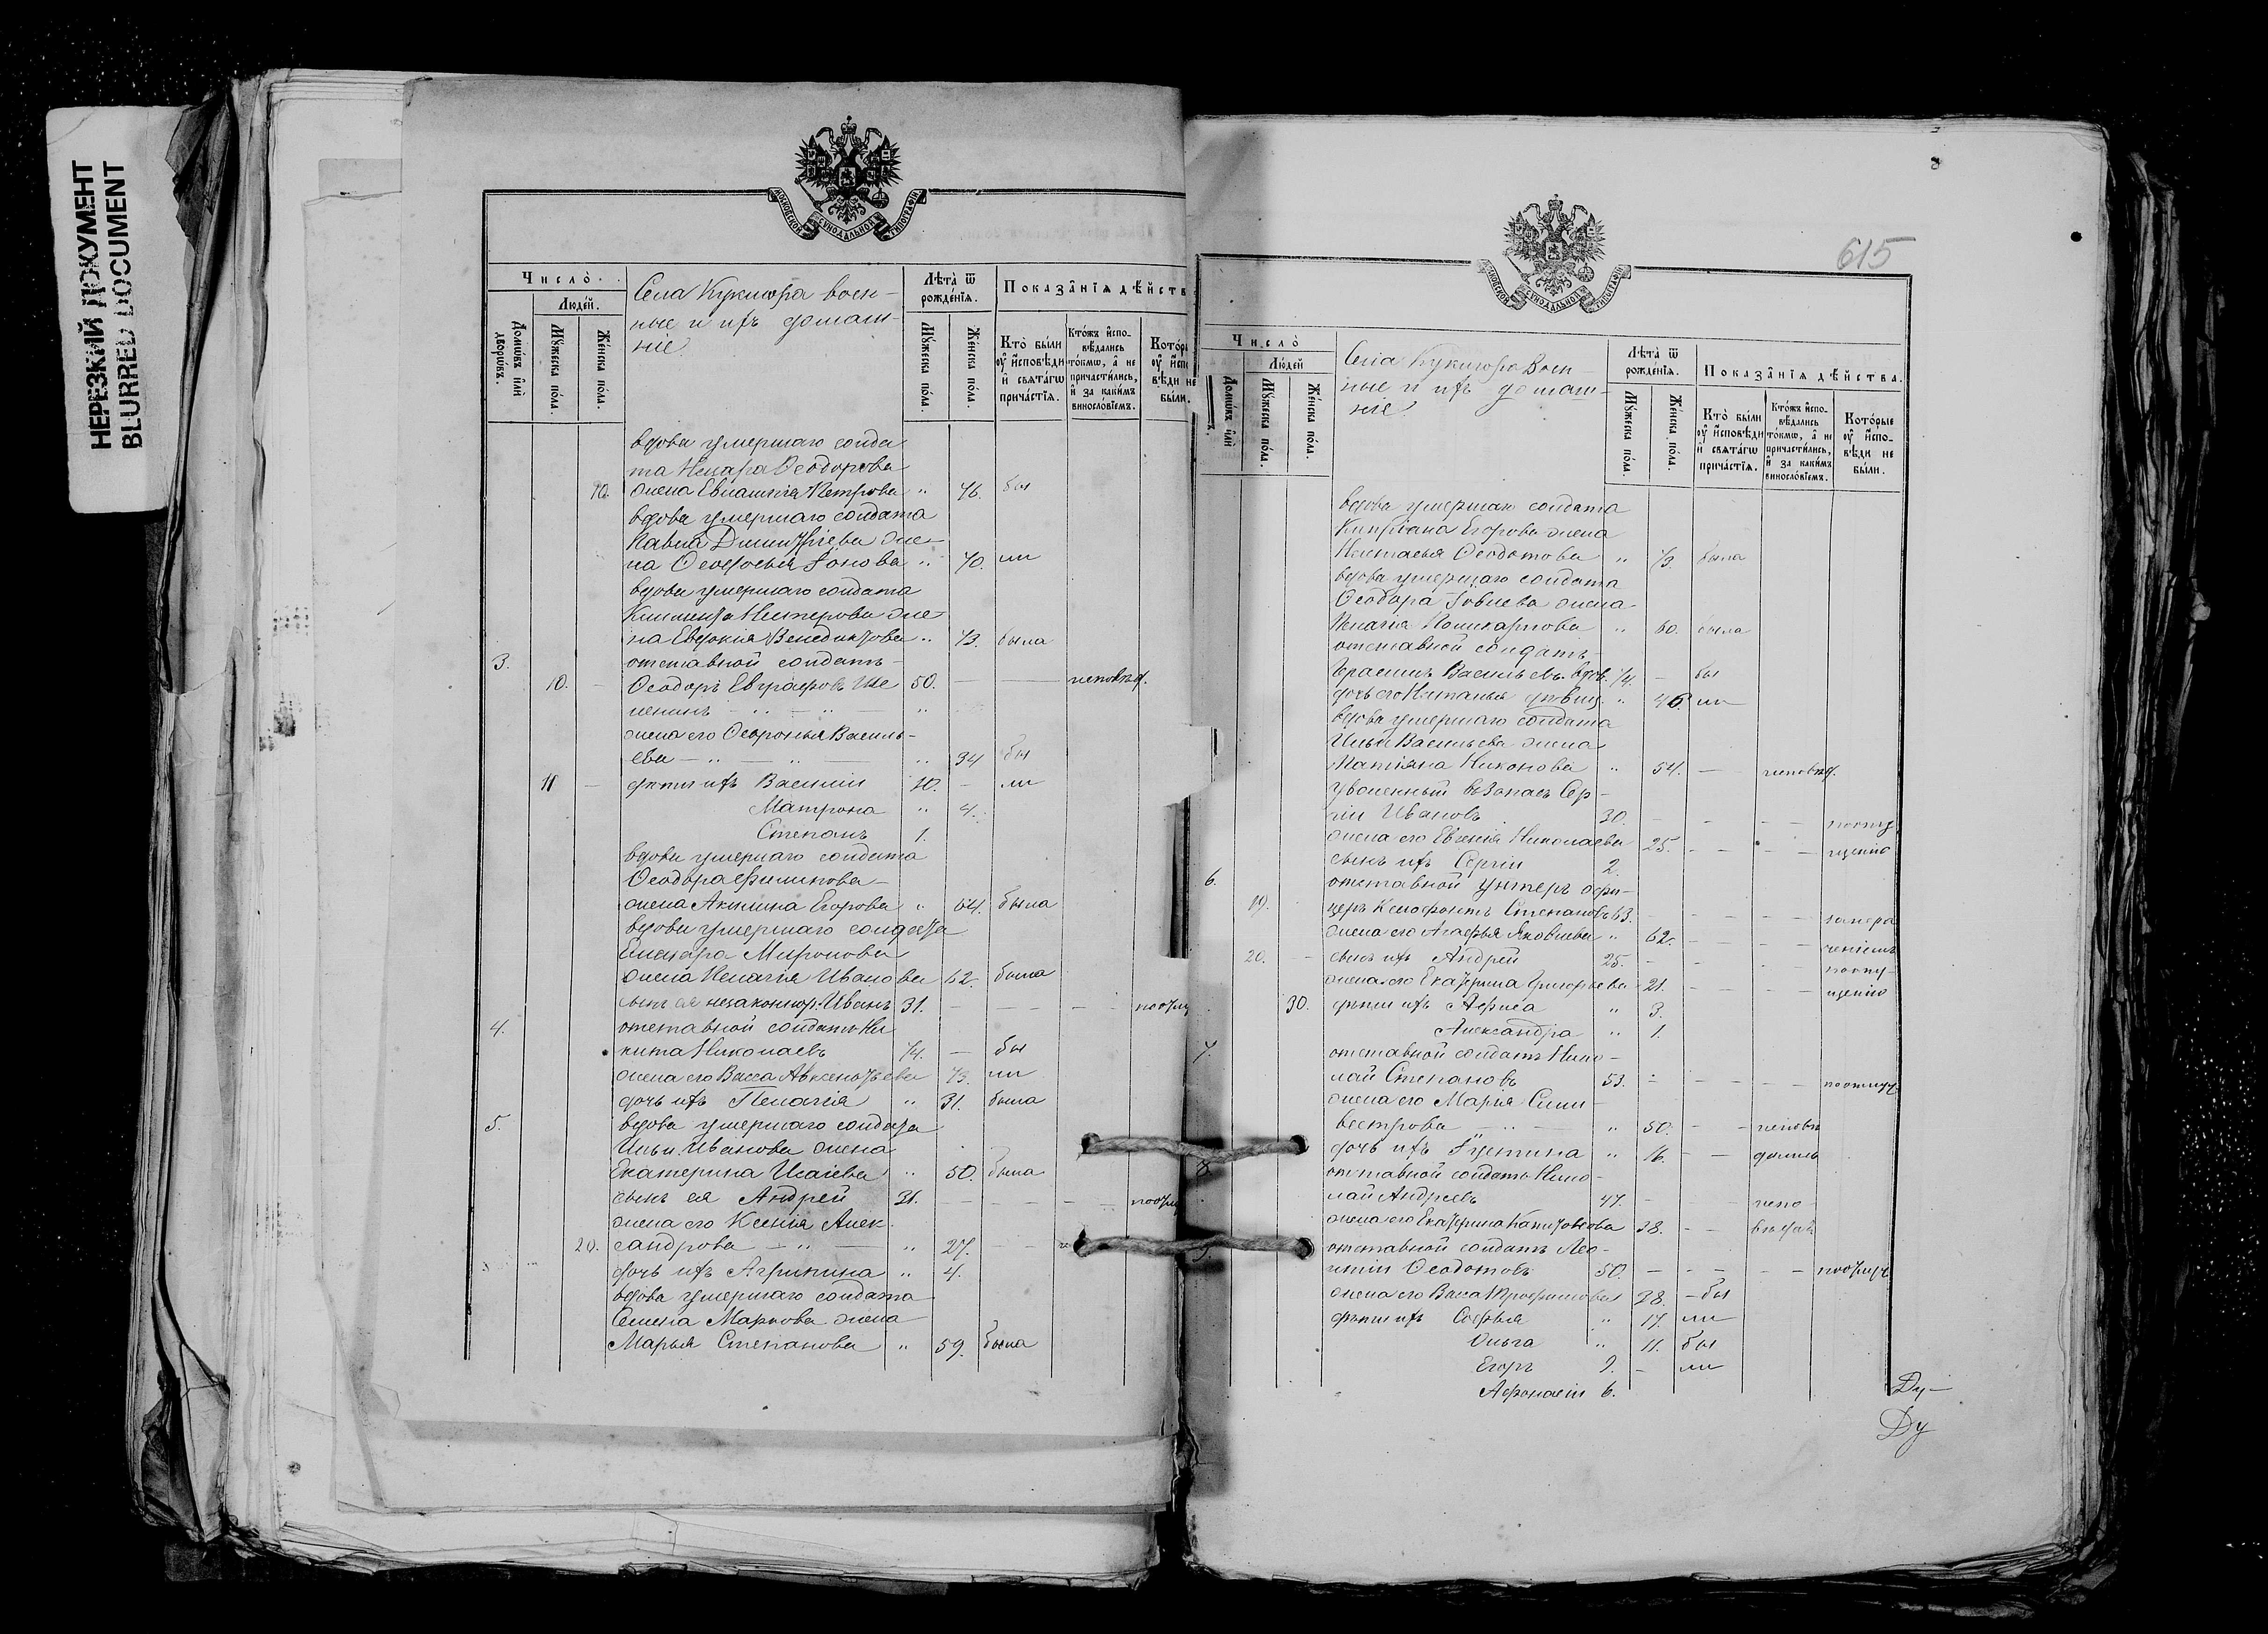 НЕРЕЗКИЙ ДОКУМЕНТ
BLURRED DOCUMENT
МОСКОВСКОЙ СѴНОДАЛЬНОЙ ТИПОГРАФІИ
Число̀.
Людей.
Домѡвъ или дворѡвъ.
Мꙋжеска пола.
Женска пола.
Села Кукшора воен-
ные и ихъ домаш-
ніе.
Лѣта ѿ рождéнїѧ.
Мꙋжеска пола.
Женска пола.
Показанїѧ дѣйств
Кто̀ были оу҆ и҆сповѣди и҆ свѧтагѡ причастїѧ.
Кто́жъ и҆спо-вѣдались то́кмѡ, а҆ не причасти́лись, и҆ за каки́мъ винослóвїемъ.
Кото́ры оу҆ и҆спо вѣди не были.
вдова умершаго солда
та Назара Ѳеодорова
10. жена Евлампія Петрова " 76. бы
вдова умершаго солдата
Павла Димитріева же-
на Ѳеодосья Іонова " 70. ли
вдова умершаго солдата
Климента Нестерова же-
на Евдокія Венедиктова " 73. была
3. отставной солдатъ
10. Ѳеодоръ Евграфовъ Ше 50. — — неповѣд.
ленинъ " — " — "
жена его Ѳевронья Василь-
ева — " — " — " 34 бы
11 — дѣти ихъ Василій 10. - ли
Матрона " 4.
Степанъ 1.
вдова умершаго солдата
Ѳеодора Филипова
жена Акилина Егорова " 64. была
вдова умершаго солдата
Елеазара Миронова
жена Пелагія Иванова 62. была
сынъ ея незаконнор. Иванъ 31. — — — — поотлу
4. отставной солдатъ Ни
кита Николаевъ 74. — бы
жена его Васса Авксентьева 73. ли
дочь ихъ Пелагія " 31. была
5. вдова умершаго солдата
Ильи Иванова жена
Екатерина Исаіева " 50. была
сынъ ея Андрей 31. — — — — поотлу
жена его Ксенія Алек
20. сандрова — " — " 27. -
дочь ихъ Агрипина " 4.
вдова умершаго солдата
Семена Маркова жена
Марья Степанова " 59. была
615
МОСКОВСКОЙ СѴНОДАЛЬНОЙ ТИПОГРАФІИ
Число̀
Людей
Домѡвъ или
Мꙋжеска пола.
Женска пола.
Села Кукшора Воен-
ные и ихъ домаш-
ніе
Лѣта ѿ рождéнїѧ.
Мꙋжеска пола.
Женска пола.
Показанїѧ дѣйства.
Кто̀ были оу҆ и҆сповѣди и҆ свѧтагѡ причастїѧ.
Кто́жъ и҆спо-вѣдались то́кмѡ, а҆ не причасти́лись, и҆ за каки́мъ винослóвїемъ.
Кото́рые оу҆ и҆спо-вѣди не были.
вдова умершаго солдата
Кипріана Егорова жена
Настасья Ѳеодотова " 73. была
вдова умершаго солдата
Ѳеодора Іовлева жена
Пелагія Поликарпова " 60. была
отставной солдатъ
Герасимъ Васильевъ вдов. 74. — бы
дочь его Наталья дѣвиц. " 46. ли
вдова умершаго солдата
Ильи Васильева жена
Татіана Никонова " 54. — неповѣд.
уволенный въ запасъ Сер-
гій Ивановъ 30. - - - - поотлу
жена его Евгенія Николаева 25. - - - - щенію
сынъ ихъ Сергій 2.
6. отставной унтеръ офи-
19. церъ Ксенофонтъ Степановъ 63. - - - -
жена его Агафья Яковлева " 62. - - - -
20. — сынъ ихъ Андрей 25. - - - - поотлу-
жена его Екатерина Григорьева 21. - - - щенію
30. дѣти ихъ " 3.
Александра " 1.
7. отставной солдатъ Нико-
лай Степановъ 53. - - - - поотлуч
жена его Марія Сили-
вестрова — " — " 50. - - неповѣ
дочь ихъ Іустина " 16. - - дались
8. отставной солдатъ Нико-
лай Андреевъ 47. - - непо
жена его Екатерина Капитонова 38. - -
9. отставной солдатъ Лео-
нтій Ѳеодотовъ 50. - - - - поотлуч
жена его Васса Трофимова 38. — бы
дѣти ихъ Софья " 17. ли
Ольга " 11. бы
Егоръ 9. - ли
Афонасій 6.
Ду-
Ду